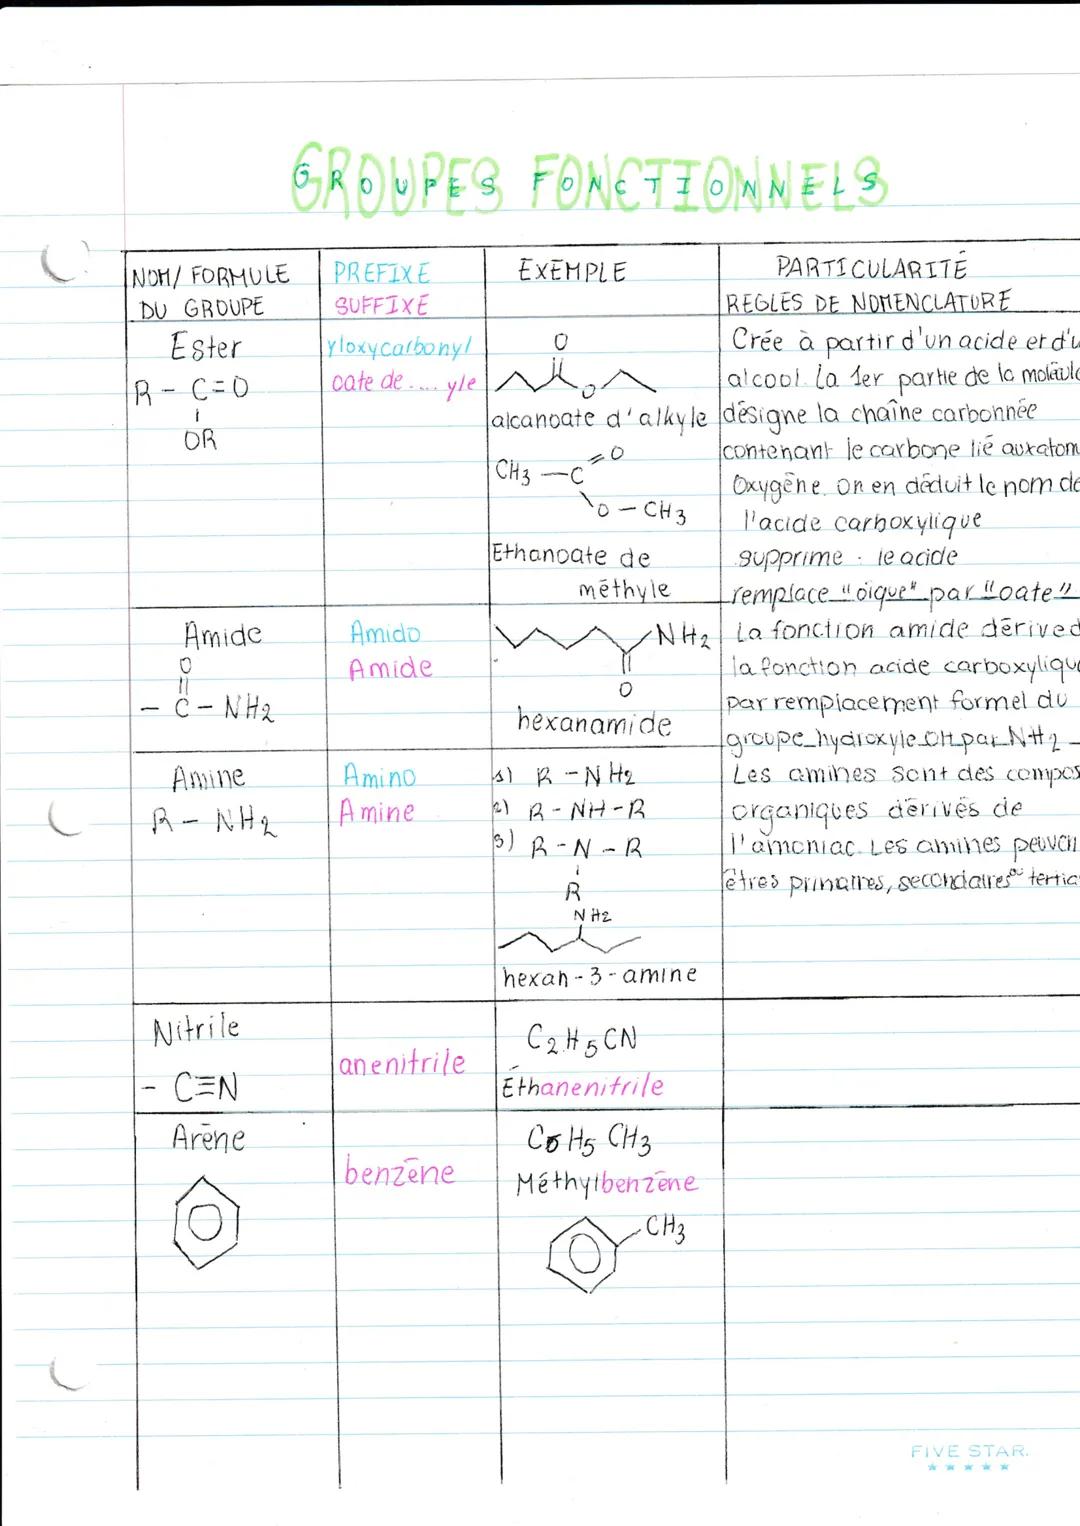 GROUPES FONCTIONNELS
GROUPES FONCTIONNELS
NOM/ FORMULE DU GROUPE
PREFIXE
SUFFIXE
EXEMPLE
PARTICULARITÉ
REGLES DE NOMENCLATURE
Ester
R - C=O
OR
yloxycarbonyl
oate de .... yle
O
O
alcanoate d'alkyle
CH3 - C =O
O - CH3
Ethanoate de
méthyle
Crée à partir d'un acide et d'u
alcool. La 1er partie de la molécule
désigne la chaîne carbonnée
contenant le carbone lié aux atom
Oxygène. On en déduit le nom de
l'acide carboxylique
supprime . le acide
remplace "oique" par "oate"
Amide
O
- C - NH2
Amido
Amide
NH2
O
hexanamide
La fonction amide dérive d
la fonction acide carboxylique
par remplacement formel du
groupe hydroxyle OH par NH2
Amine
R - NH2
Amino
Amine
1) R - NH2
2) R - NH - R
3) R - N - R
R
NH2
hexan - 3 - amine
Les amines sont des compos
organiques dérivés de
l'amoniac. Les amines peuven
êtres primaires, secondaires ou tertia
Nitrile
- C≡N
anenitrile
C2H5CN
Éthanenitrile
Arène
benzène
C6H5 CH3
Méthylbenzène
CH3
FIVE STAR.